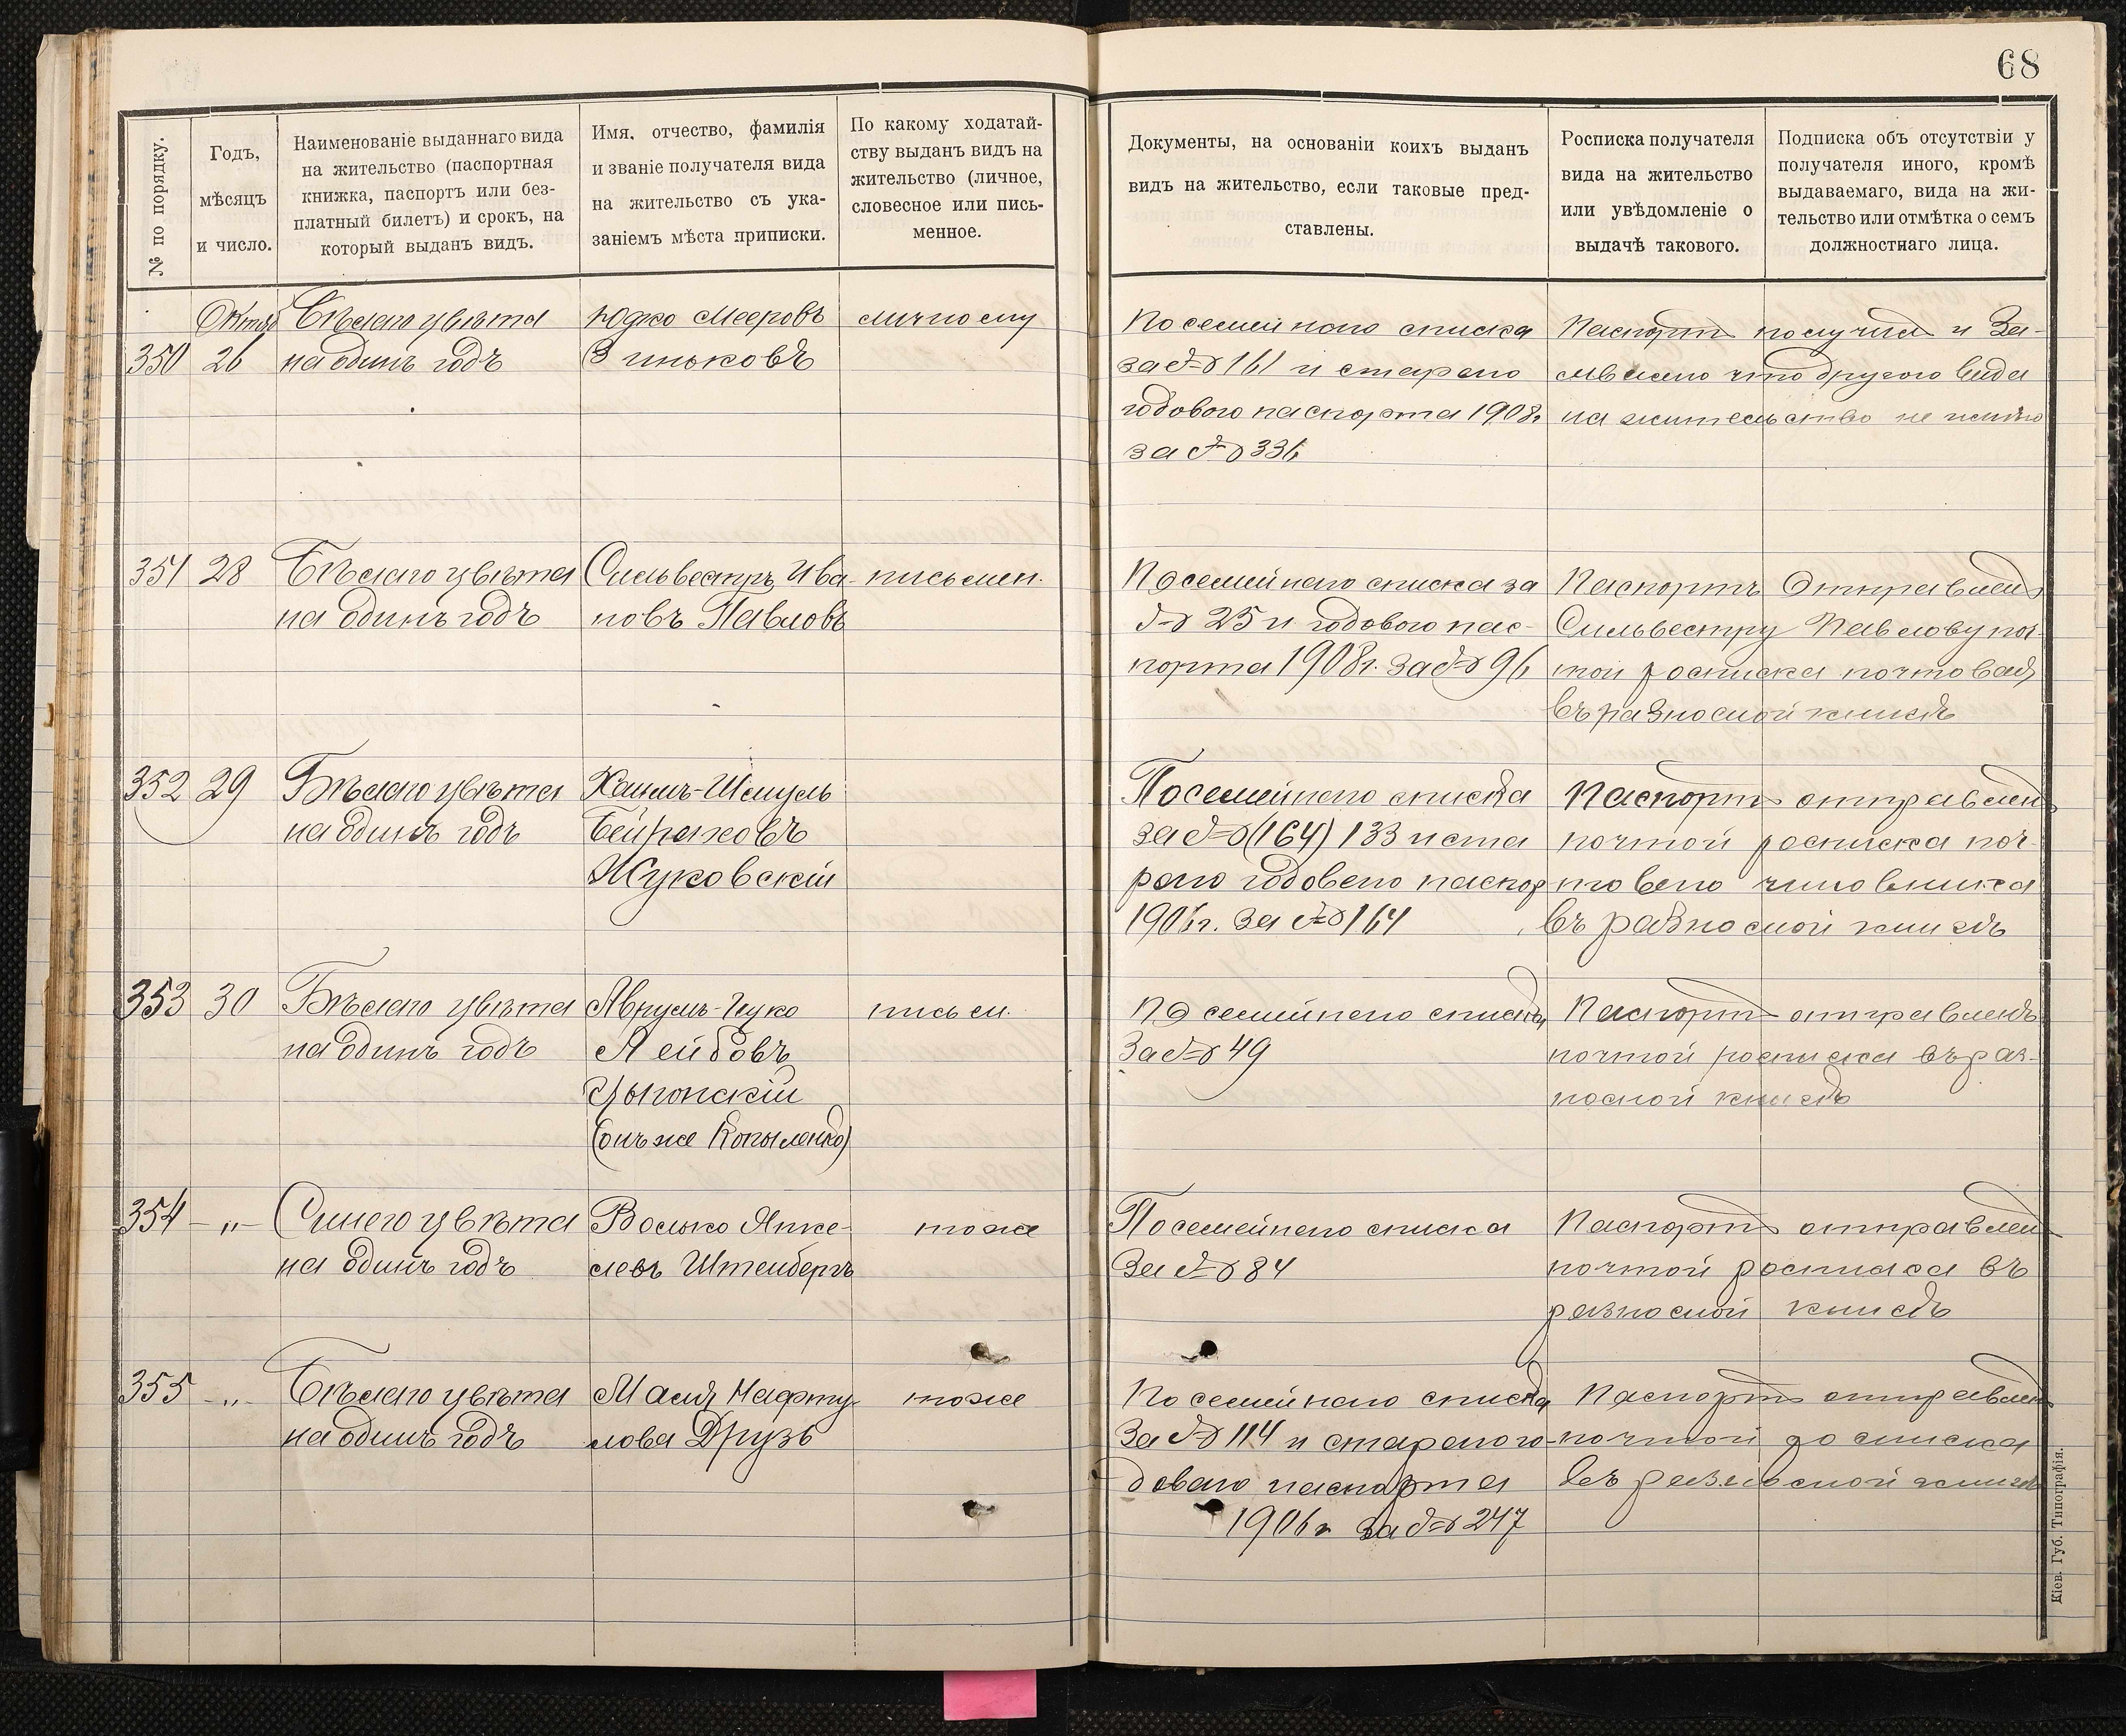 68
№ по порядку.
Годъ,
мѣсяцъ
и число.
Наименованіе выданнаго вида
на жительство (паспортная
книжка, паспортъ или без-
платный билетъ) и срокъ, на
который выданъ видъ.
Имя, отчество, фамилія
и званіе получателя вида
на жительство съ ука-
заніемъ мѣста приписки.
По какому ходатай-
ству выданъ видъ на
жительство (личное,
словесное или пись-
менное.
Документы, на основаніи коихъ выданъ
видъ на жительство, если таковые пред-
ставлены.
Росписка получателя
вида на жительство
или увѣдомленіе о
выдачѣ такового.
Подписка объ отсутствіи у
получателя иного, кромѣ
выдаваемаго, вида на жи-
тельство или отмѣтка о семъ
должностнаго лица.
350
Октяб
26
Бѣлаго цвѣта
на одинъ годъ
Юдко Мееровъ
Зиньковъ
личному
Посемейнаго списка
за № 161 и стараго
годового паспорта 1908г
за № 336
Паспортъ получилъ и За-
явлено что другого вида
на жительство не имѣю
351
28
Бѣлаго цвѣта
на одинъ годъ
Сильвестръ Ива-
новъ Павловъ
письмен.
Посемейнаго списка за
№ 25 и годового пас-
порта 1908г. за № 96
Паспортъ Отправленъ
Сильвестру Павлову поч-
той росписка почтовая
въ разносной книгѣ
352
29
Бѣлаго цвѣта
на одинъ годъ
Хаимъ-Шмуль
Бейраховъ
Жуковскій
Посемейнаго списка
за № (164) 133 и ста
раго годового паспор
1906г. За № 164
Паспортъ отправленъ
почтой росписка поч-
товаго чиновника
въ разносной книгѣ
353
30
Бѣлаго цвѣта
на одинъ годъ
Аврумъ-Ицко
Лейбовъ
Цыгонскій
(онъ же Копыленко)
письм.
По семейнаго списка
За № 49
Паспортъ отправленъ
почтой росписка въ раз-
носной книгѣ
354
-„-
Синего цвѣта
на одинъ годъ
Волько Янке-
левъ Штенбергъ
тоже
Посемейнаго списка
За № 84
Паспортъ отправлен
почтой росписка въ
разносной книгѣ
355
-„-
Бѣлаго цвѣта
на одинъ годъ
Маля Нафту-
лова Друзь
тоже
По семейнаго списка
За № 114 и стараго го-
доваго паспорта
1906г за № 247
Паспортъ отправлен
почтой росписка
въ разносной книгѣ
Кіев. Губ. Типографія.